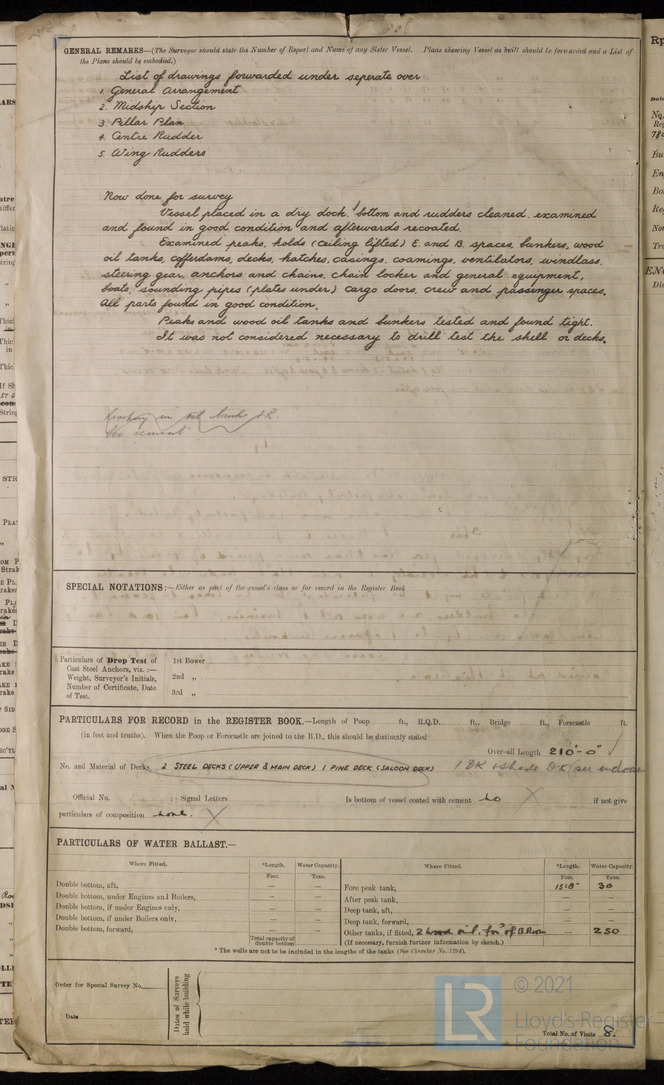 GENERAL REMARKS—(The Surveyor should state the Number of Report and Name of any Sister Vessel. Plans shewing Vessel as built should be forwarded and a List of
the Plans should be embodied.)
List of drawings forwarded under seperate over
1. General Arrangement
2. Midship Section
3. Pillar Plan
4. Centre Rudder
5. Wing Rudders
Now done for survey
Vessel placed in a dry dock, bottom and rudders cleaned, examined
and found in good condition and afterwards recoated.
Examined peaks, holds (Ceiling lifted) E. and B. spaces, bunkers, wood
oil tanks, cofferdams, decks, hatches, casings, coamings, ventilators, windlass,
steering gear, anchors and chains, chain locker and general equipment,
boats, sounding pipes (plates under) cargo doors, crew and passenger spaces.
All parts found in good condition.
Peaks and wood oil tanks and bunkers tested and found tight.
It was not considered necessary to drill test the shell or decks.
SPECIAL NOTATIONS:—Either as part of the vessel's class or for record in the Register Book
Particulars of Drop Test of
Cast Steel Anchors, viz.:—
Weight, Surveyor's Initials,
Number of Certificate, Date
of Test.
1st Bower
2nd „
3rd „
PARTICULARS FOR RECORD in the REGISTER BOOK.—Length of Poop ft., R.Q.D. ft., Bridge ft., Forecastle ft.
(in feet and tenths). When the Poop or Forecastle are joined to the B.D., this should be distinctly stated
Over-all Length 210'-0"
No. and Material of Decks 2 STEEL DECKS (UPPER & MAIN DECK) 1 PINE DECK (SALOON DECK) 1 DK
Official No. : Signal Letters Is bottom of vessel coated with cement no if not give
particulars of composition none.
PARTICULARS OF WATER BALLAST.—
Where Fitted. *Length. Water Capacity. Where Fitted. *Length. Water Capacity.
Feet. Tons. Feet. Tons.
Double bottom, aft, — — Fore peak tank, 15'8" 30
Double bottom, under Engines and Boilers, — — After peak tank, — —
Double bottom, if under Engines only, — — Deep tank, aft, — —
Double bottom, if under Boilers only, — — Deep tank, forward, — —
Double bottom, forward, — — Other tanks, if fitted, 2 wood oil, for'd of B. Room — 250
Total capacity of double bottom (If necessary, furnish further information by sketch.)
* The wells are not to be included in the lengths of the tanks (See Circular No. 1284).
Order for Special Survey No.
Date
Dates of Surveys held while building
© 2021
LR
Lloyd's Register
Foundation
Total No. of Visits 8.